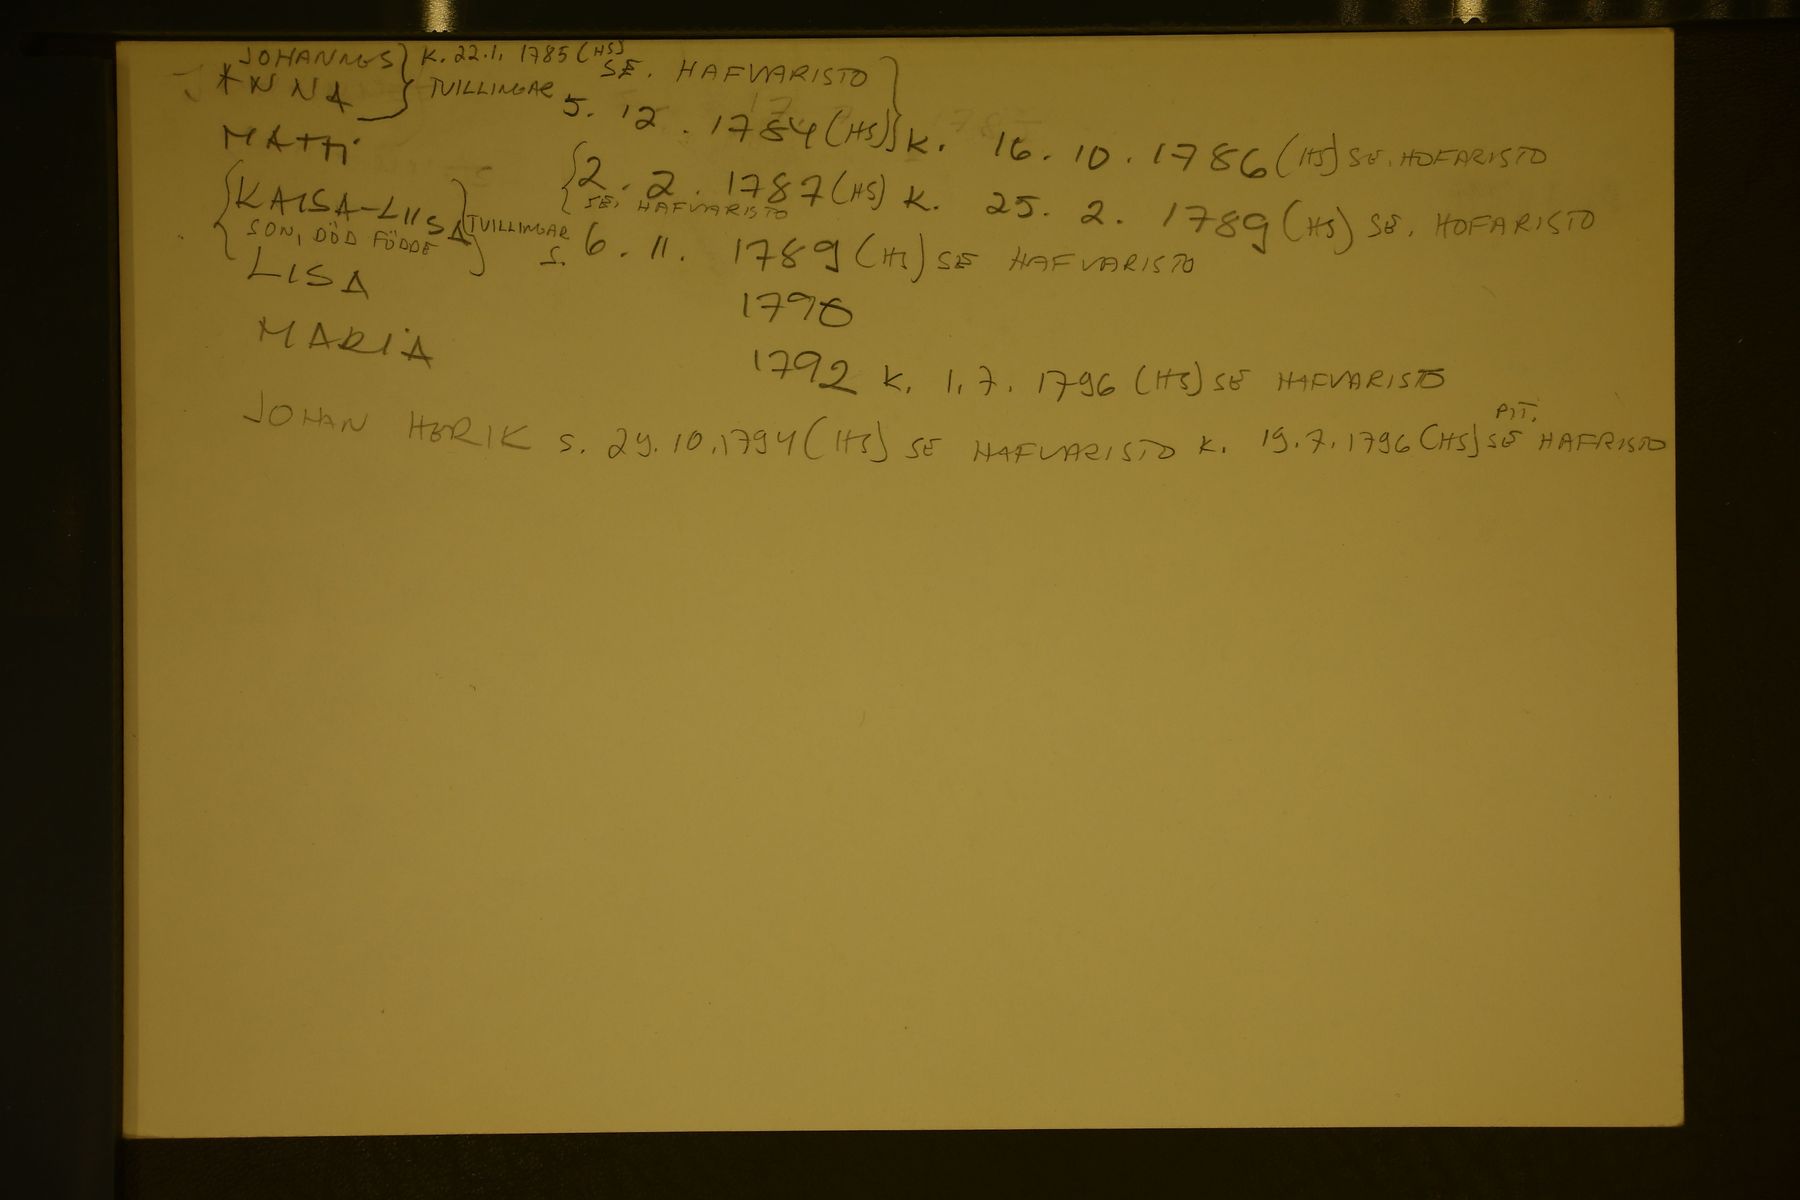 JOHANNES } K. 22.1. 1785 (HS) SE. HAFVARISTO }
ANNA } TVILLINGAR 5. 12. 1784 (HS) } K. 16. 10. 1786 (HS) SE. HOFARISTO
MATTI { 2. 2. 1787 (HS) K. 25. 2. 1789 (HS) SE. HOFARISTO
SE. HAFVARISTO
{ KAISA-LIISA } TVILLINGAR S. 6. 11. 1789 (HS) SE HAFVARISTO
SON, DÖD FÖDDE
LISA 1790
MARIA 1792 K. 1.7. 1796 (HS) SE HAFVARISTO
PIT.
JOHAN HERIK S. 29.10.1794 (HS) SE HAFVARISTO K. 19.7.1796 (HS) SE HAFRISTO